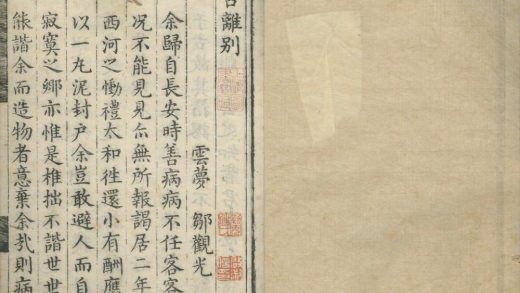 離別
雲夢 鄒觀光
余歸自長安時善病病不任客客
况不能見見亦無所報謁居二年
西河之慟禮太和徃還小有酬應
以一丸泥封戶余豈敢避人而自
寂寞之鄉亦惟是椎拙不諧世世
能諧余而造物者意棄余㢤則病